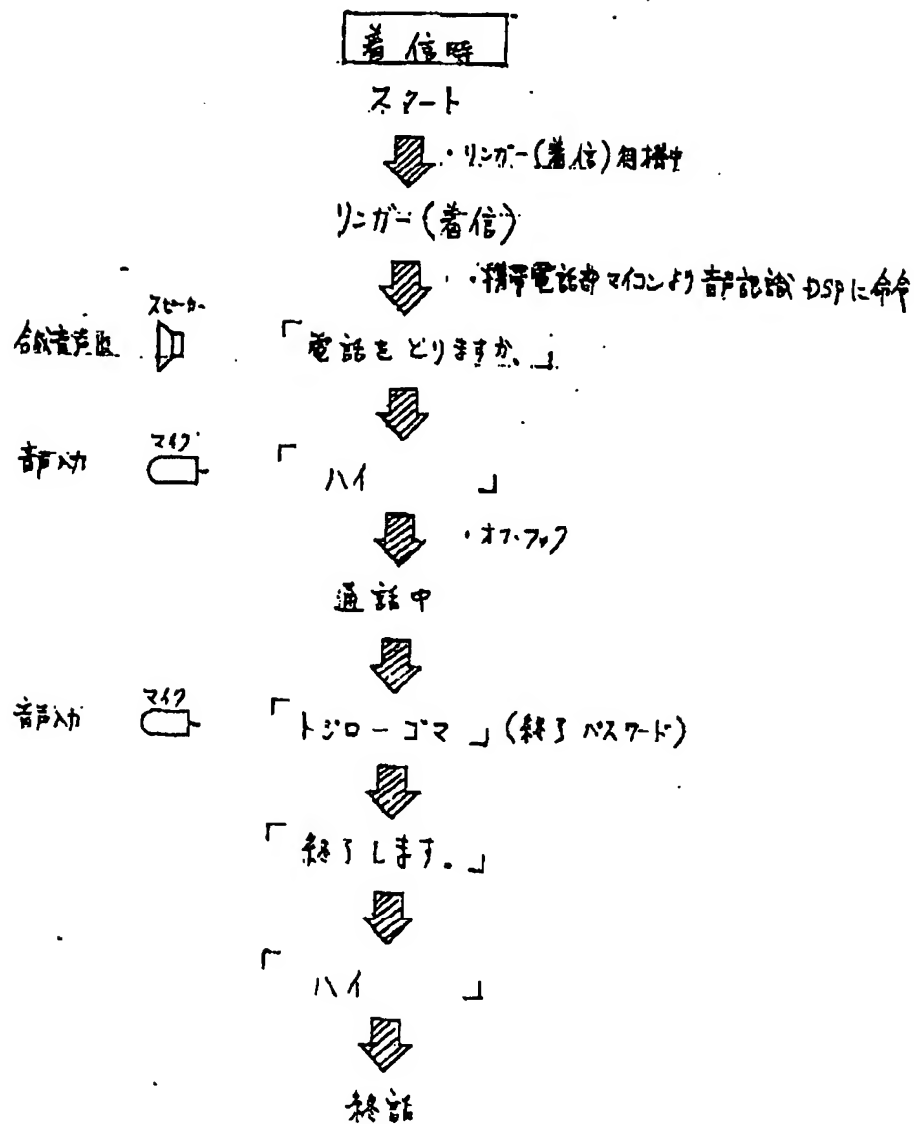 着信時
スタート
・リンガー(着信)待機中
リンガー(着信)
・携帯電話部マイコンより音声認識DSPに命令
スピーカー
合成音声
「電話をとりますか。」
音声入力 マイク 「ハイ 」
・オフ・フック
通話中
音声入力 マイク 「トジローゴマ」(終了パスワード)
「終了します。」
「ハイ 」
終話